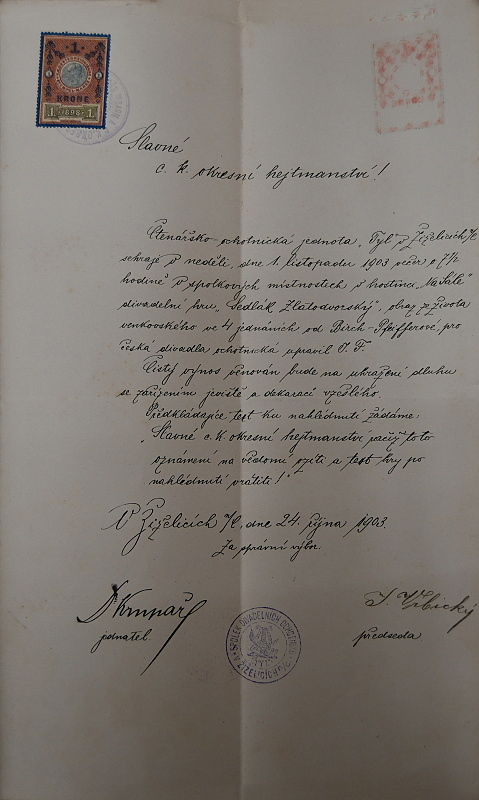 1
KRONE
1 1898 1
Slavné
c. k. okresní hejtmanství!
Čtenářsko ochotnická jednota „Tyl“ v Žiželicích n/C
sehraje v neděli, dne 1. listopadu 1903 večer o 7 1/2
hodině v spolkových místnostech v hostinci „Na Sále“
divadelní hru „Sedlák Zlatodvorský“, obraz ze života
venkovského ve 4 jednáních od Birch-Pfeifferové, pro
česká divadla ochotnická upravil J. F.
Čistý výnos věnován bude na uhražení dluhu
se zařízením jeviště a dekorací vzešlého.
Předkládajíce text ku nahlédnutí žádáme:
„Slavné c. k. okresní hejtmanství račiž toto
oznámení na vědomí vzíti a text hry po
nahlédnutí vrátiti!“
V Žiželicích n/C, dne 24. října 1903.
Za správní výbor.
jednatel.
předseda
SPOLEK DIVADELNÍCH OCHOTNÍKŮ
V ŽIŽELICÍCH